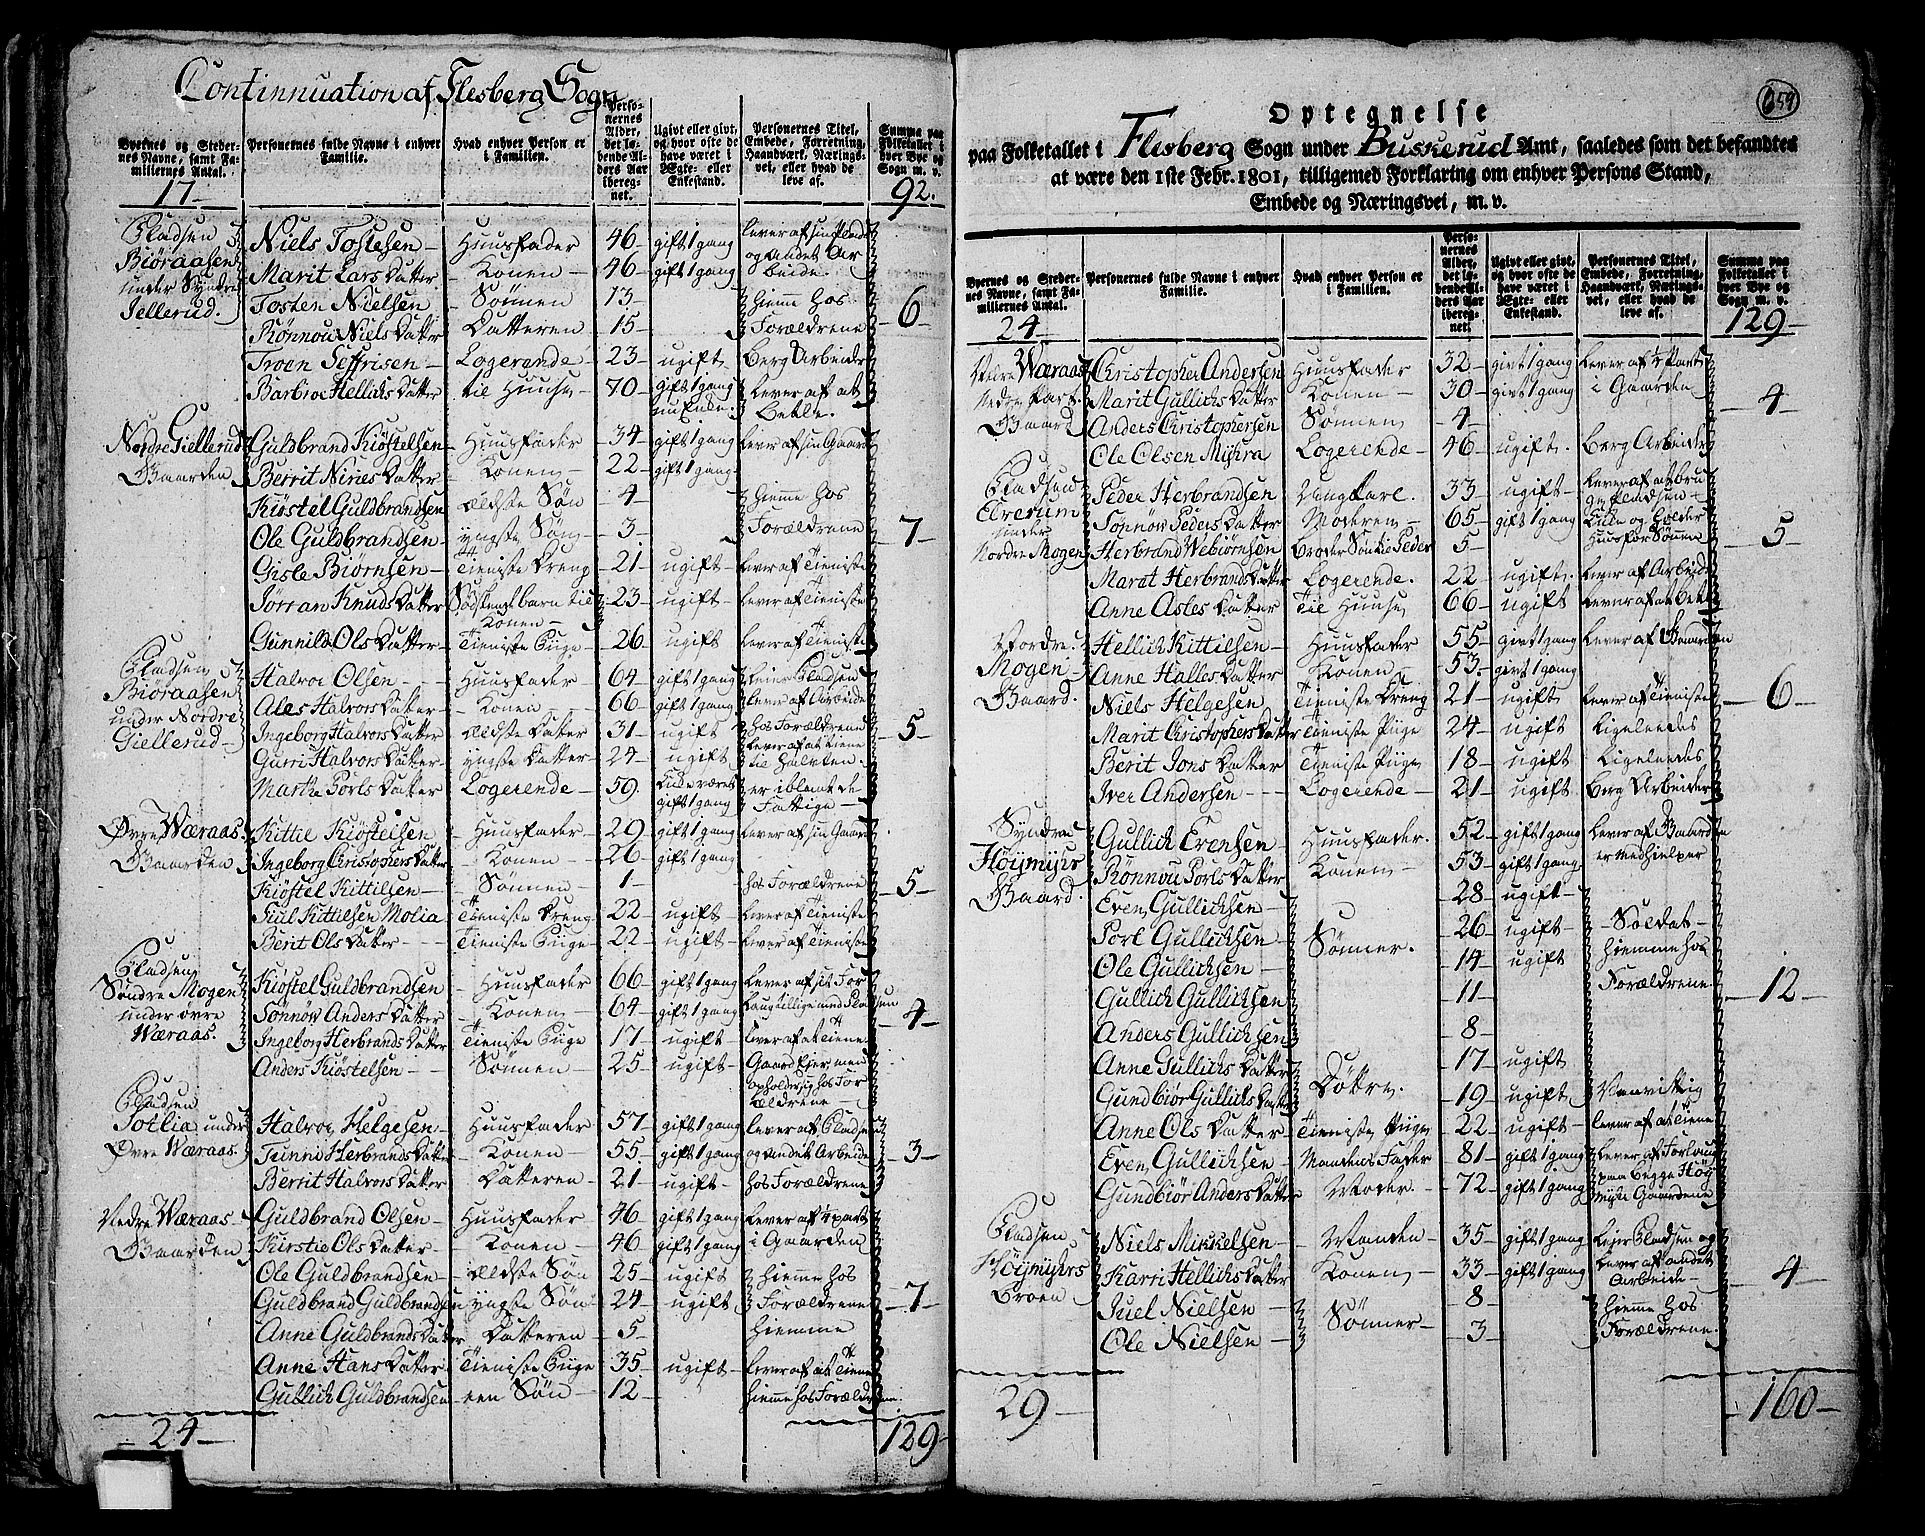 Continnuation af Flesberg Sogn
Byernes og Stedernes Navne, samt Familiernes Antal. Personernes fulde Navne i enhver Familie. Hvad enhver Person er i Familien. Personernes Alder, det løbende Alders Aar iberegnet. Ugivt eller givt, og hvor ofte de have været i Ægte- eller Enkestand. Personernes Titel, Embede, Forretning, Haandværk, Næringsvei, eller hvad de leve af. Summa paa Folketallet i hver Bye og Sogn m. v.
17 92.
Pladsen Niels Tostesen Huusfader 46 gift 1 gang lever af sin Plads
Biøraasen Marit Lars Datter Konen 46 gift 1 gang og Andet Arbeide
under Syndre Tosten Nielsen Sønnen 13 hieme hos
Jellerud. Rønnou Niels Datter Datteren 15 Forældrene 6
Troen Seffrisen Logerende 23 ugift Berg Arbeider
Barbroe Hellichs Datter til Huuse 70 gift 1 gang nu Enke. Lever af at Betle.
Nordre Giellerud Guldbrand Kiøstelsen Huusfader 34 gift 1 gang lever af sin Gaard
Gaarden Berrit Nires Datter Konen 22 gift 1 gang
Kiøstel Guldbrandsen Ældste Søn 4 hieme hos
Ole Guldbrandsen yngste Søn 3 Forældrene 7
Gisle Biørnsen Tieniste Dreng 21 ugift lever af Tieniste
Jørran Knuds Datter Sødskende barn til Konen 23 ugift lever af Tieniste
Gunnild Ols Datter Tieniste Piige 26 ugift lever af Tieniste
Pladsen Halvor Olsen Huusfader 64 gift 1 gang leier Pladsen
Biøraasen Ales Halvors Datter Konen 66 gift 1 gang lever af Arbeide
under Nordre Ingeborg Halvors Datter Ældste Datter 31 ugift hos Forældrene 5
Giellerud Gurri Halvors Datter yngste Datter 24 ugift lever af at tiene til Halvten.
Marthe Porls Datter Logerende 59. gift 1 gang er iblant de Fattige
Øvre Wæraas. Kittil Kiøstelsen Huusfader 29 gift 1 gang lever af sin Gaard
Gaarden Ingeborg Christophers Datter Konen 26 gift 1 gang
Kiøstel Kittilsen Sønnen 1 hos Forældrene 5
Juel Kittilsen Molia Tieniste Dreng 22 ugift lever af Tieniste
Berit Ols Datter Tieniste Piige 22 ugift lever af Tieniste
Pladsen Kiøstel Guldbrandsen Huusfader 66 gift 1 gang lever af sit For
Søndre Mogen Sønnøv Anders Datter Konen 64 gift 1 gang laug tillige med Pladsen 4
under øvre Ingeborg Herbrands Datter Tieniste Piige 17 ugift lever af at Tiene
Wæraas. Anders Kiøstelsen Sønnen 25 ugift Gaard Ejer, med opholder sig hos Forældrene
Pladsen
Sotlia under Halvor Helgesen Huusfader 57 gift 1 gang lever af Pladsen
Øvre Wæraas. Tunni Herbrands Datter Konen 55 gift 1 gang og andet Arbeide 3
Berrit Halvors Datter Datteren 21 ugift hos Forældrene
Nedre Wæraas Guldbrand Olsen Huusfader 46 gift 1 gang lever af 1/4 part
Gaarden Kirstie Ols Datter Konen 46 gift 1 gang i Gaarden
Ole Guldbrandsen Ældste Søn 25 ugift hieme hos
Guldbrand Guldbrandsen yngste Søn 24 ugift Forældrene 7
Anne Guldbrands Datter Datteren 5 hiemme
Anne Hans Datter Tieniste Piige 35 ugift lever af at Tiene
Gullich Guldbrandsen een Søn 12 hieme hos Forældrene.
24 129
659
Optegnelse
paa Folketallet i Flesberg Sogn under Buskerud Amt, saaledes som det befandtes
at være den 1ste Febr. 1801, tilligemed Forklaring om enhver Persons Stand,
Embede og Næringsvei, m. v.
Byernes og Stedernes Navne, samt Familiernes Antal. Personernes fulde Navne i enhver Familie. Hvad enhver Person er i Familien. Personernes Alder, det løbende Alders Aar iberegnet. Ugivt eller givt, og hvor ofte de have været i Ægte- eller Enkestand. Personernes Titel, Embede, Forretning, Haandværk, Næringsvei, eller hvad de leve af. Summa paa Folketallet i hver Bye og Sogn m. v.
24 129
Nedre Wæraas Christopher Andersen Huusfader 32 givt 1 gang lever af 1/4 Part
Nedre Part. Marit Gullichs Datter Konen 30 givt 1 gang i Gaarden 4
Gaard Anders Christophersen Sønnen 4
Ole Olsen Myhra Logerende 46 ugift. Berg Arbeider
Pladsen Peder Herbrandsen Ungkarl. 33 ugift lever af at bruge Pladsen
under Sønnøv Peders Datter Moderen 65 gift 1 gang 5
Nordre Mogen Herbrand Webiørnsen Broder Søn til Peder 5 huus for Sønnen
Marat Herbrands Datter Logerende. 22 ugift. lever af Arbeide
Anne Astes Datter Til Huuse 66 ugift lever af at Betle
Nordre Hellich Kittilsen Huusfader 55 givt 1 gang lever af Gaarden
Mogen Anne Halles Datter Konen 53. givt 1 gang
Gaard. Niels Helgesen Tieniste Dreng 21 ugift lever af Tieniste 6
Marit Christophers Datter Tieniste Piige 24 ugift Ligeleedes
Berit Jons Datter Tieniste Piige 18 ugift Ligeleedes
Iver Andersen Logerende 21 ugift Berg Arbeider
Syndre Gullich Evensen Huusfader. 52 gift 1 gang lever af Gaarden
Høymyhr Rønnou Porls Datter Konen 53 gift 1 gang er Medhielper
Gaard. Even Gullichsen 28 ugift
Porl Gullichsen Sønner. 26 ugift Soldat
Ole Gullichsen 14 ugift hiemme hos
Gullich Gullichsen 11 Forældrene 12
Anders Gullichsen 8
Anne Gullichs Datter Døttre. 17 ugift
Gundbiør Gullichs Datter 19 ugift Vanvittig
Anne Ols Datter Tieniste Piige 22 ugift lever af at Tiene
Even Gullichsen Mandens Fader 81 gift 1 gang lever af Forlaug
Gundbiør Anders Datter Moder 72 gift 1 gang paa begge Høymyhr Gaardene
Pladsen Niels Mikkelsen Manden 35 gift 1 gang lejer Pladsen og
Høymyhrs Karri Hellichs Datter Konen 33 gift 1 gang lever af andet Arbeide 4
Broen Juel Nielsen Sønner 8 hieme hos
Ole Nielsen 3 Forældrene.
29 160